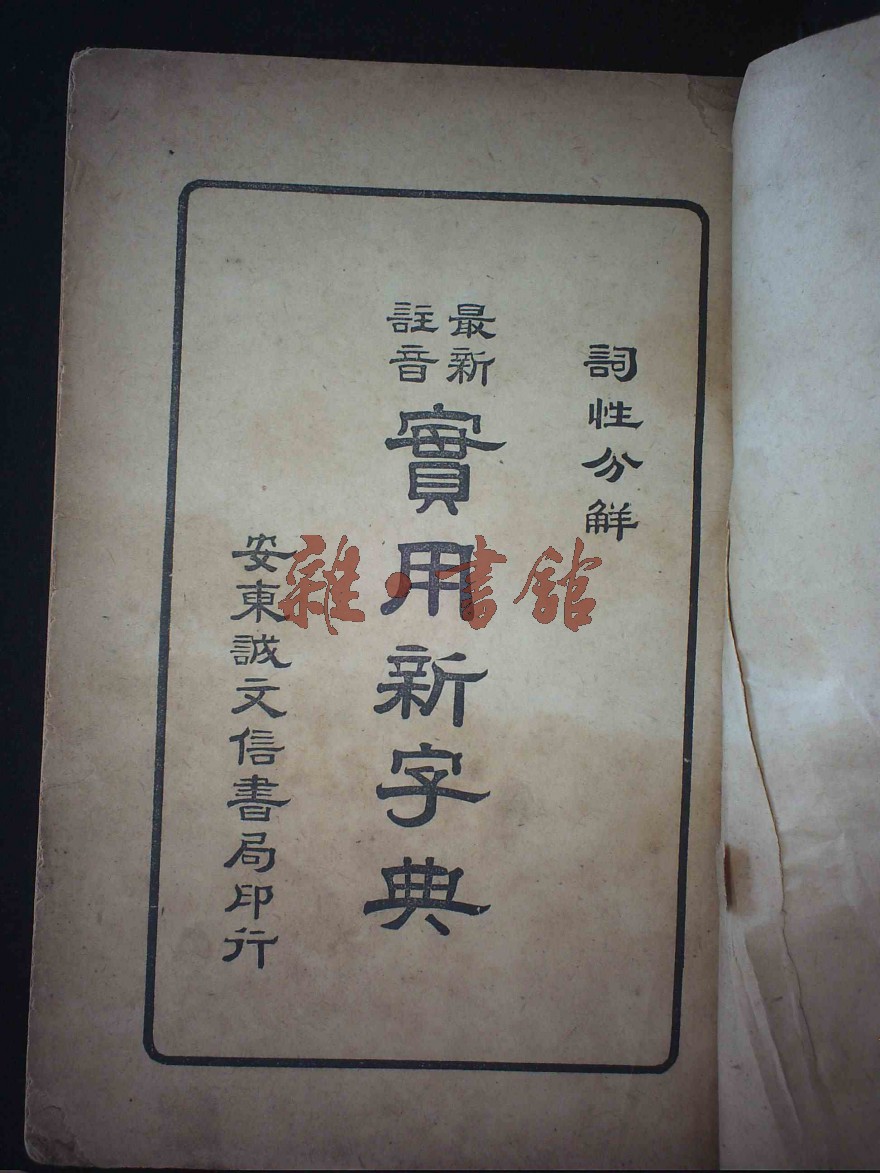 詞性分解
最新
註音
實用新字典
安東誠文信書局印行
雜·書館